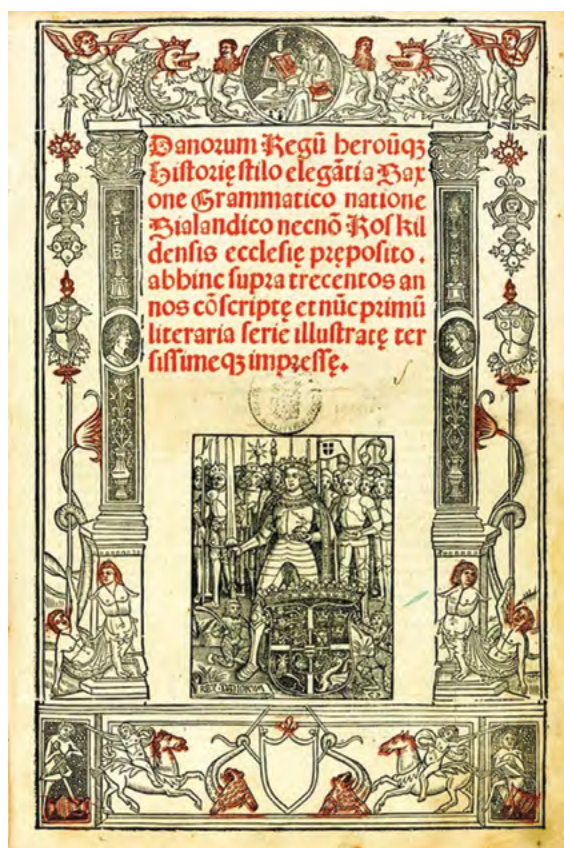 Danorum Regũ heroũqȝ
Historię stilo elegãti a Sax
one Grammatico natione
Sialandico necnõ Roskil
densis ecclesię pręposito.
abhinc supra trecentos an
nos cõscriptę et nũc primũ
literaria serie illustratę ter
sissimeqȝ impressę.
REX DANORVM